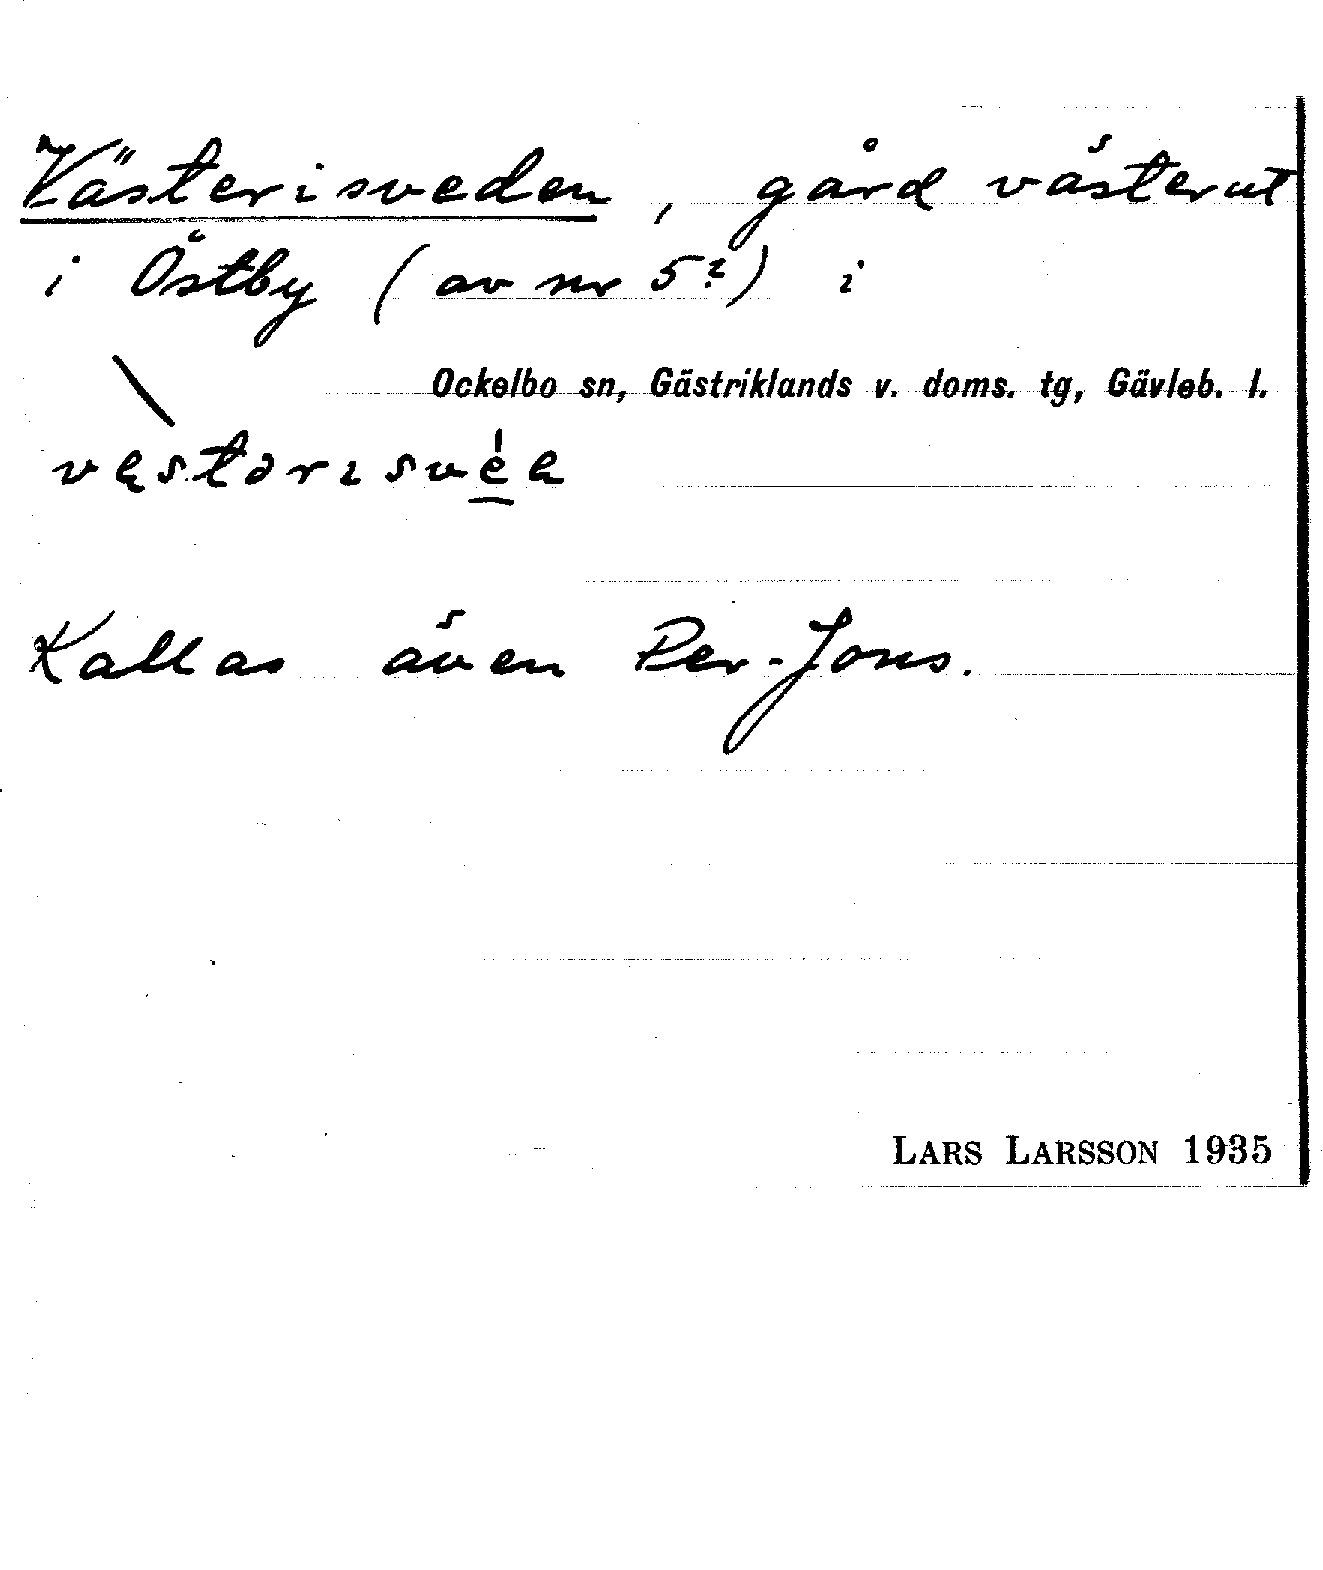 Västerisveden, gård västerut
i Östby (av nr 5?) i
Ockelbo sn, Gästriklands v. doms. tg, Gävleb. l.
Kallas även Per-Jons.
LARS LARSSON 1935